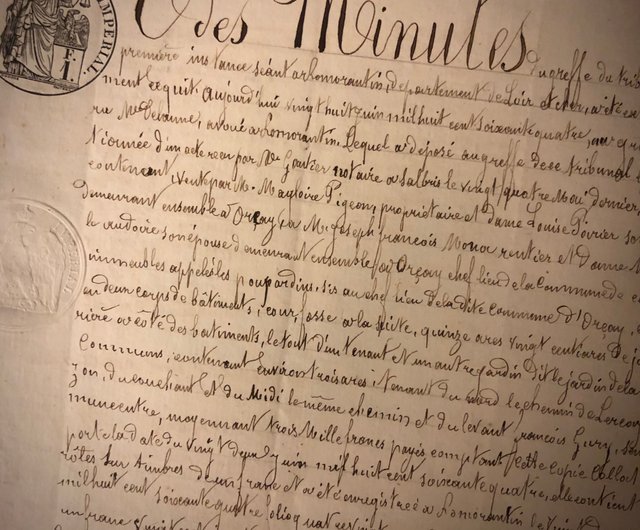 IMPERIAL
1 F.
des Minules du greffe du tri
première instance séant à Romorantin, département de Loir et cher, a été ex
ment ce qui suit, aujourd'hui vingt huit juin mil huit cent soixante quatre, au gre
avoué à Romorantin, Lequel a déposé au greffe de ce tribunal
d'un acte reçu par Me Gautier notaire à Salbris le vingt quatre Mai dernier,
contenant vente par M. Magloire Pigeon, propriétaire et Dame Louise Poirier so
demeurant ensemble à Orçay, à Mr Joseph François Monor rentier et Dame M
son épouse demeurant ensemble à Orçay chef lieu de la Commune de
immeubles appelés les poupardins, sis au chef lieu de la dite commune d'Orçay,
en deux corps de bâtiments, cour, fosse à la suite, quinze ares vingt centiares De ja
rière à côté des batiments, le tout d'un tenant et un autre jardin dit le jardin de la
Communs, contenant environ trois ares; tenant du nord le chemin de
zon, du couchant et du Midi le même chemin et du levant François Gury,
moyennant trois Mille francs payés comptant, cette copie Colla
porte la date du vingt deux juin mil huit cent soixante quatre, elle contient
rôles sur timbres de un franc et a été enregistrée à Romorantin le
mil huit cent soixante quatre folio quatre
un franc